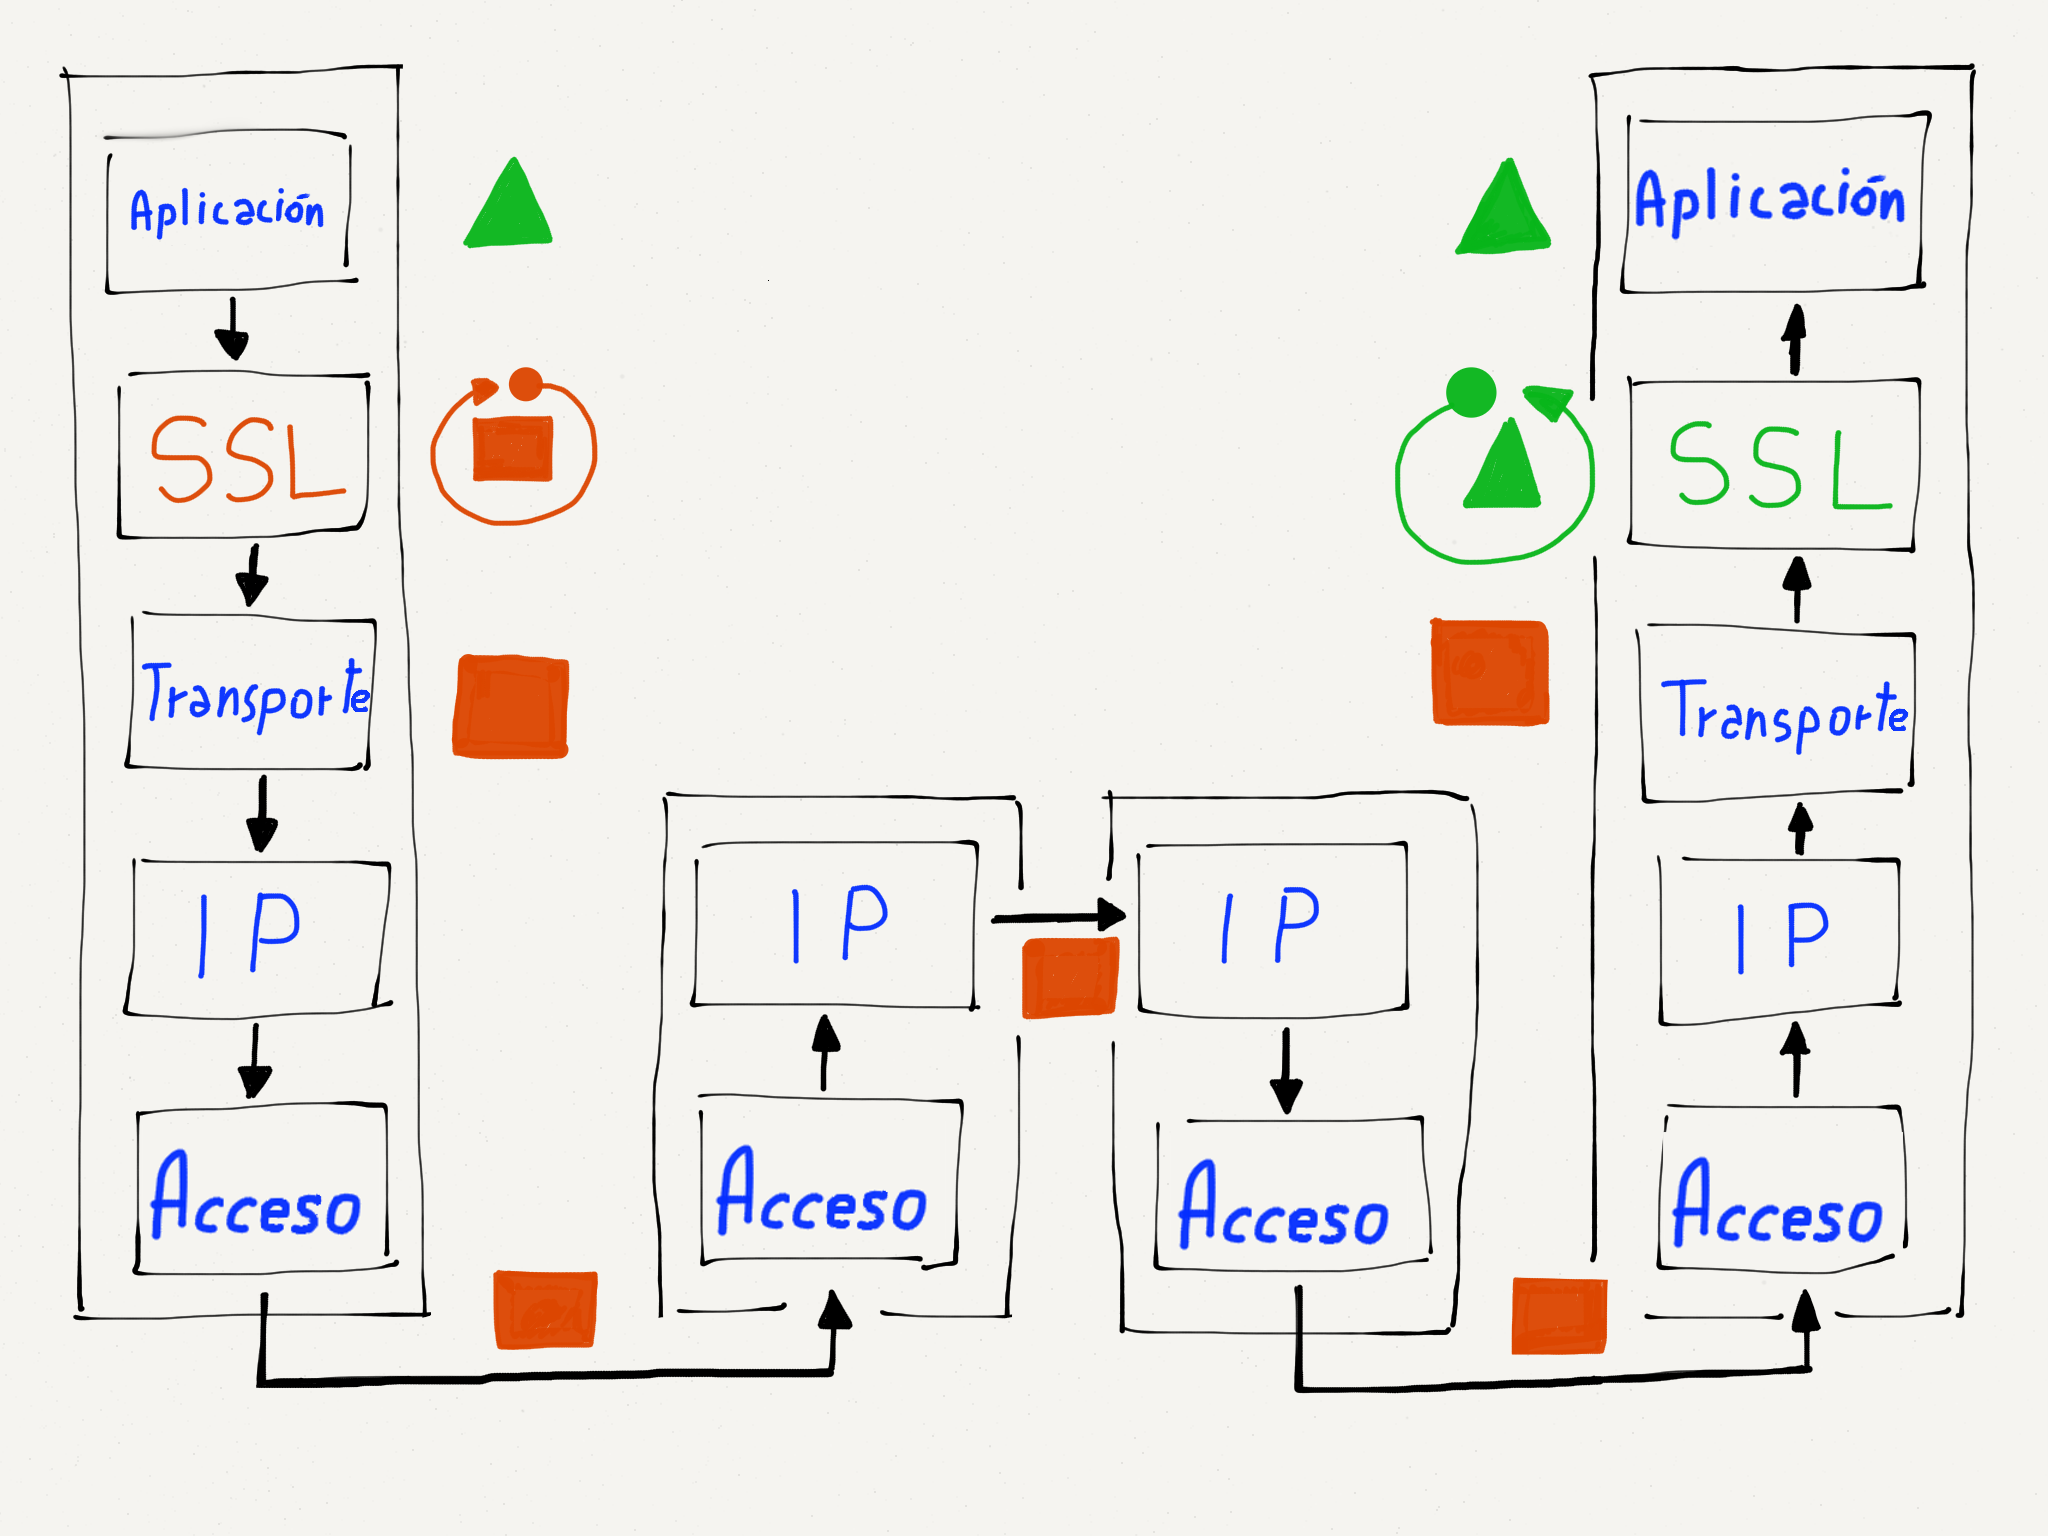 Aplicación
SSL
Transporte
IP
Acceso
IP
Acceso
IP
Acceso
Aplicación
SSL
Transporte
IP
Acceso